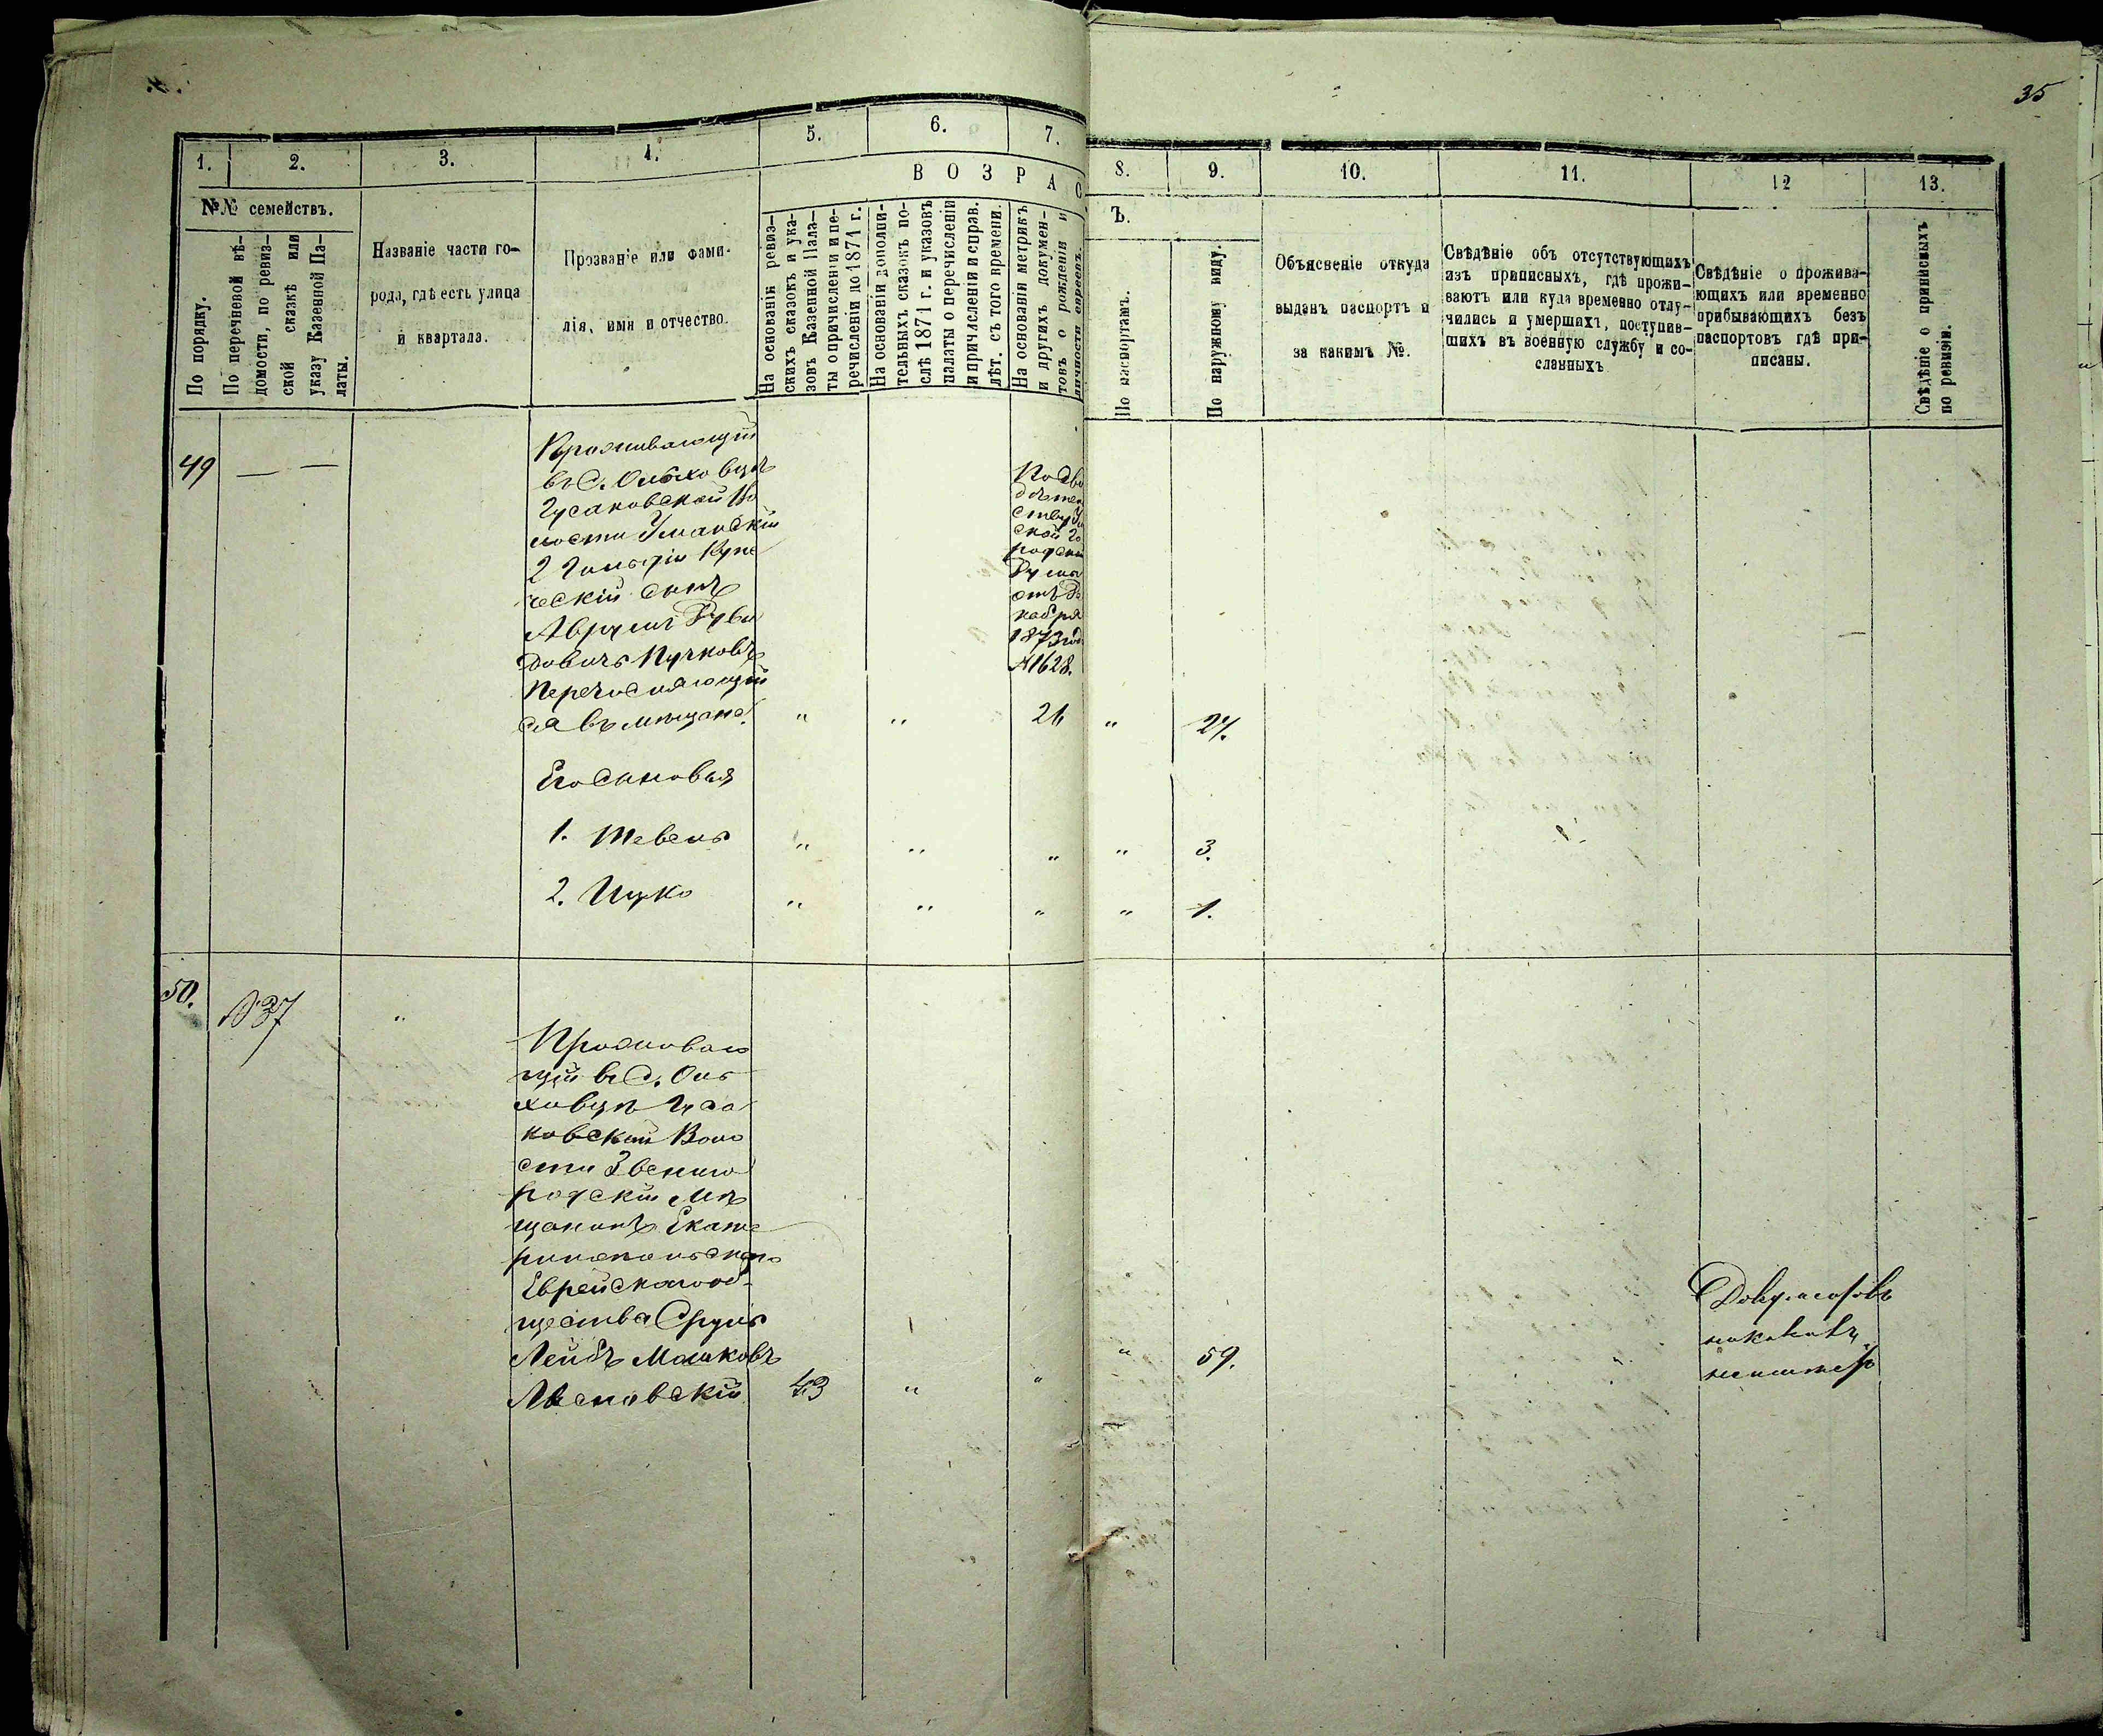 35
1.
2.
3.
4.
5.
6.
7.
8.
9.
10.
11.
12
13.
ВОЗРАС
Ъ.
№№ семействъ.
По порядку.
По перечневой вѣ-
домости, по ревиз-
ской сказкѣ или
указу Казенной Па-
латы.
Названіе части го-
рода, гдѣ есть улица
и квартала.
Прозваніе или фами-
лія, имя и отчество.
На основаніи ревиз-
скихъ сказокъ и ука-
зовъ Казенной Пала-
ты о причисленіи и пе-
речисленіи до 1871 г.
На основаніи дополни-
тельныхъ сказокъ по-
слѣ 1871 г. и указовъ
палаты о перечисленіи
и причисленіи и справ.
лѣт. съ того времени.
На основаніи метрикъ
и другихъ докумен-
товъ о рожденіи и
личности евреевъ.
По паспортамъ.
По наружному виду.
Объясненіе откуда
выданъ паспортъ и
за какимъ №.
Свѣдѣніе объ отсутствующихъ
изъ приписныхъ, гдѣ прожи-
ваютъ или куда временно отлу-
чились и умершихъ, поступив-
шихъ въ военную службу и со-
сланныхъ
Свѣдѣніе о прожива-
ющихъ или временно
прибывающихъ безъ
паспортовъ гдѣ при-
писаны.
Свѣдѣніе о приписныхъ
по ревизіи.
49 — —
Проживающій
въ С. Ольховцѣ
Гусаковской Во
лости Уманскій
2 Гильдіи Купе
ческій сынъ
Аврумъ Руви
новичъ Пучковъ
Перечисляющій
ся въ мѣщане.
" " 26 " 27.
По сви
дѣтель
ству Ум
ской Го
родской
Думы
отъ Де
кабря
1873 год
№ 1628.
Его Сыновья
1. Шевель " " " " 3.
2. Ицко " " " " 1.
50.
№37
"
Проживаю
щій въ С. Оль
ховцѣ Гуса
ковской Воло
сти Звениго
родскій Мѣ
щанинъ Екате
ринопольскаго
Еврейскаго об-
щества Сруль
Лейбъ Мошковъ
Лясковскій 43 " " " 59.